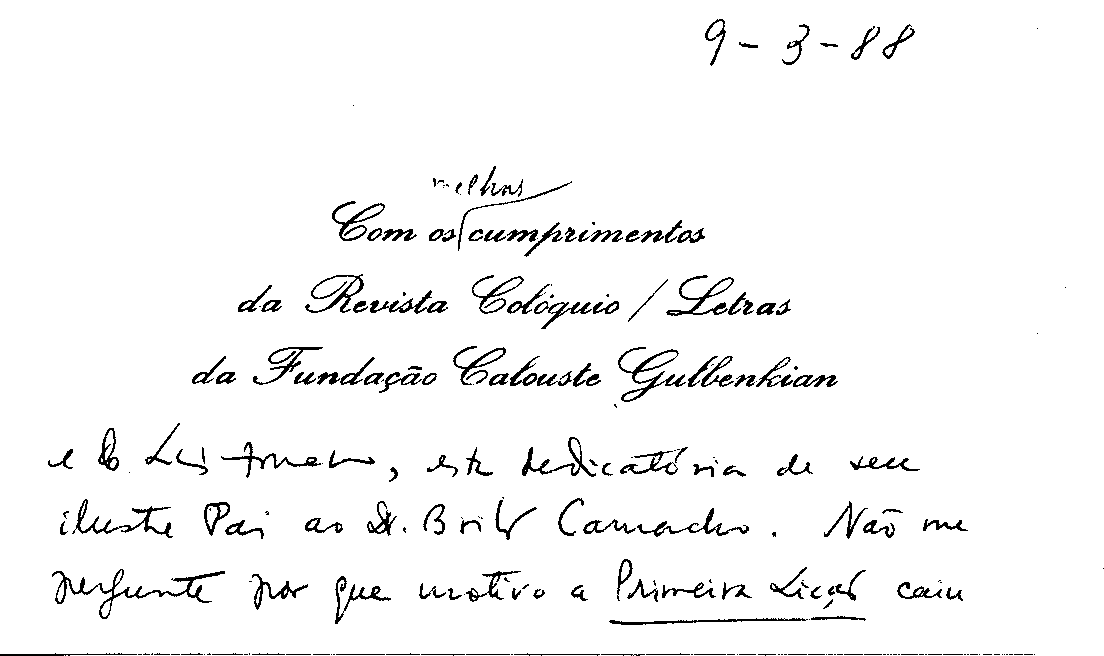 9-3-88
melhores
Com os cumprimentos
da Revista Colóquio / Letras
da Fundação Calouste Gulbenkian
e do Luís Amaro, esta dedicatória de seu
ilustre Pai ao Dr. Brito Camacho. Não me
pergunte por que motivo a Primeira Lição caiu